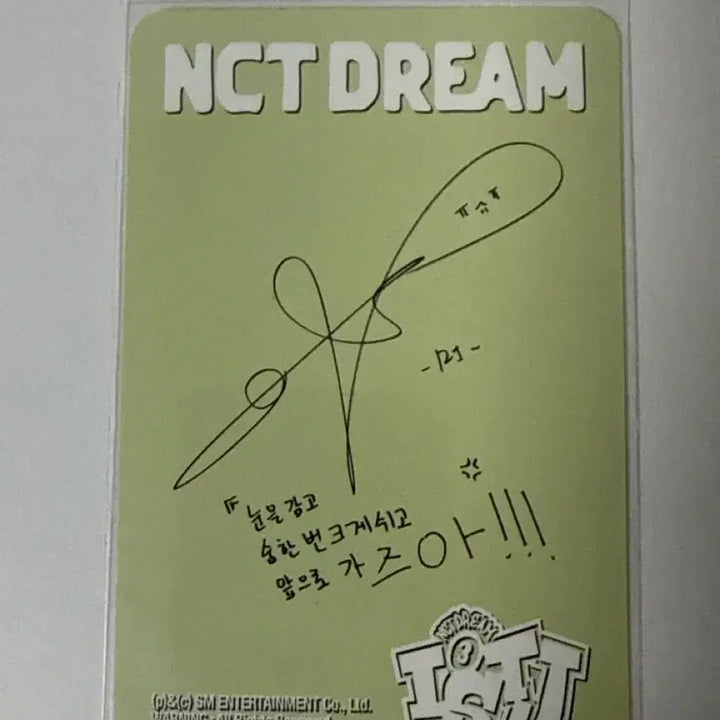 NCT DREAM
ㅠㅅㅠ
눈을 감고
숨한번 크게 쉬고
앞으로 가즈아!!!
NCT DREAM
3
ISTJ
(p)&(c) SM ENTERTAINMENT Co., Ltd.
WARNING: All Rights Reserved